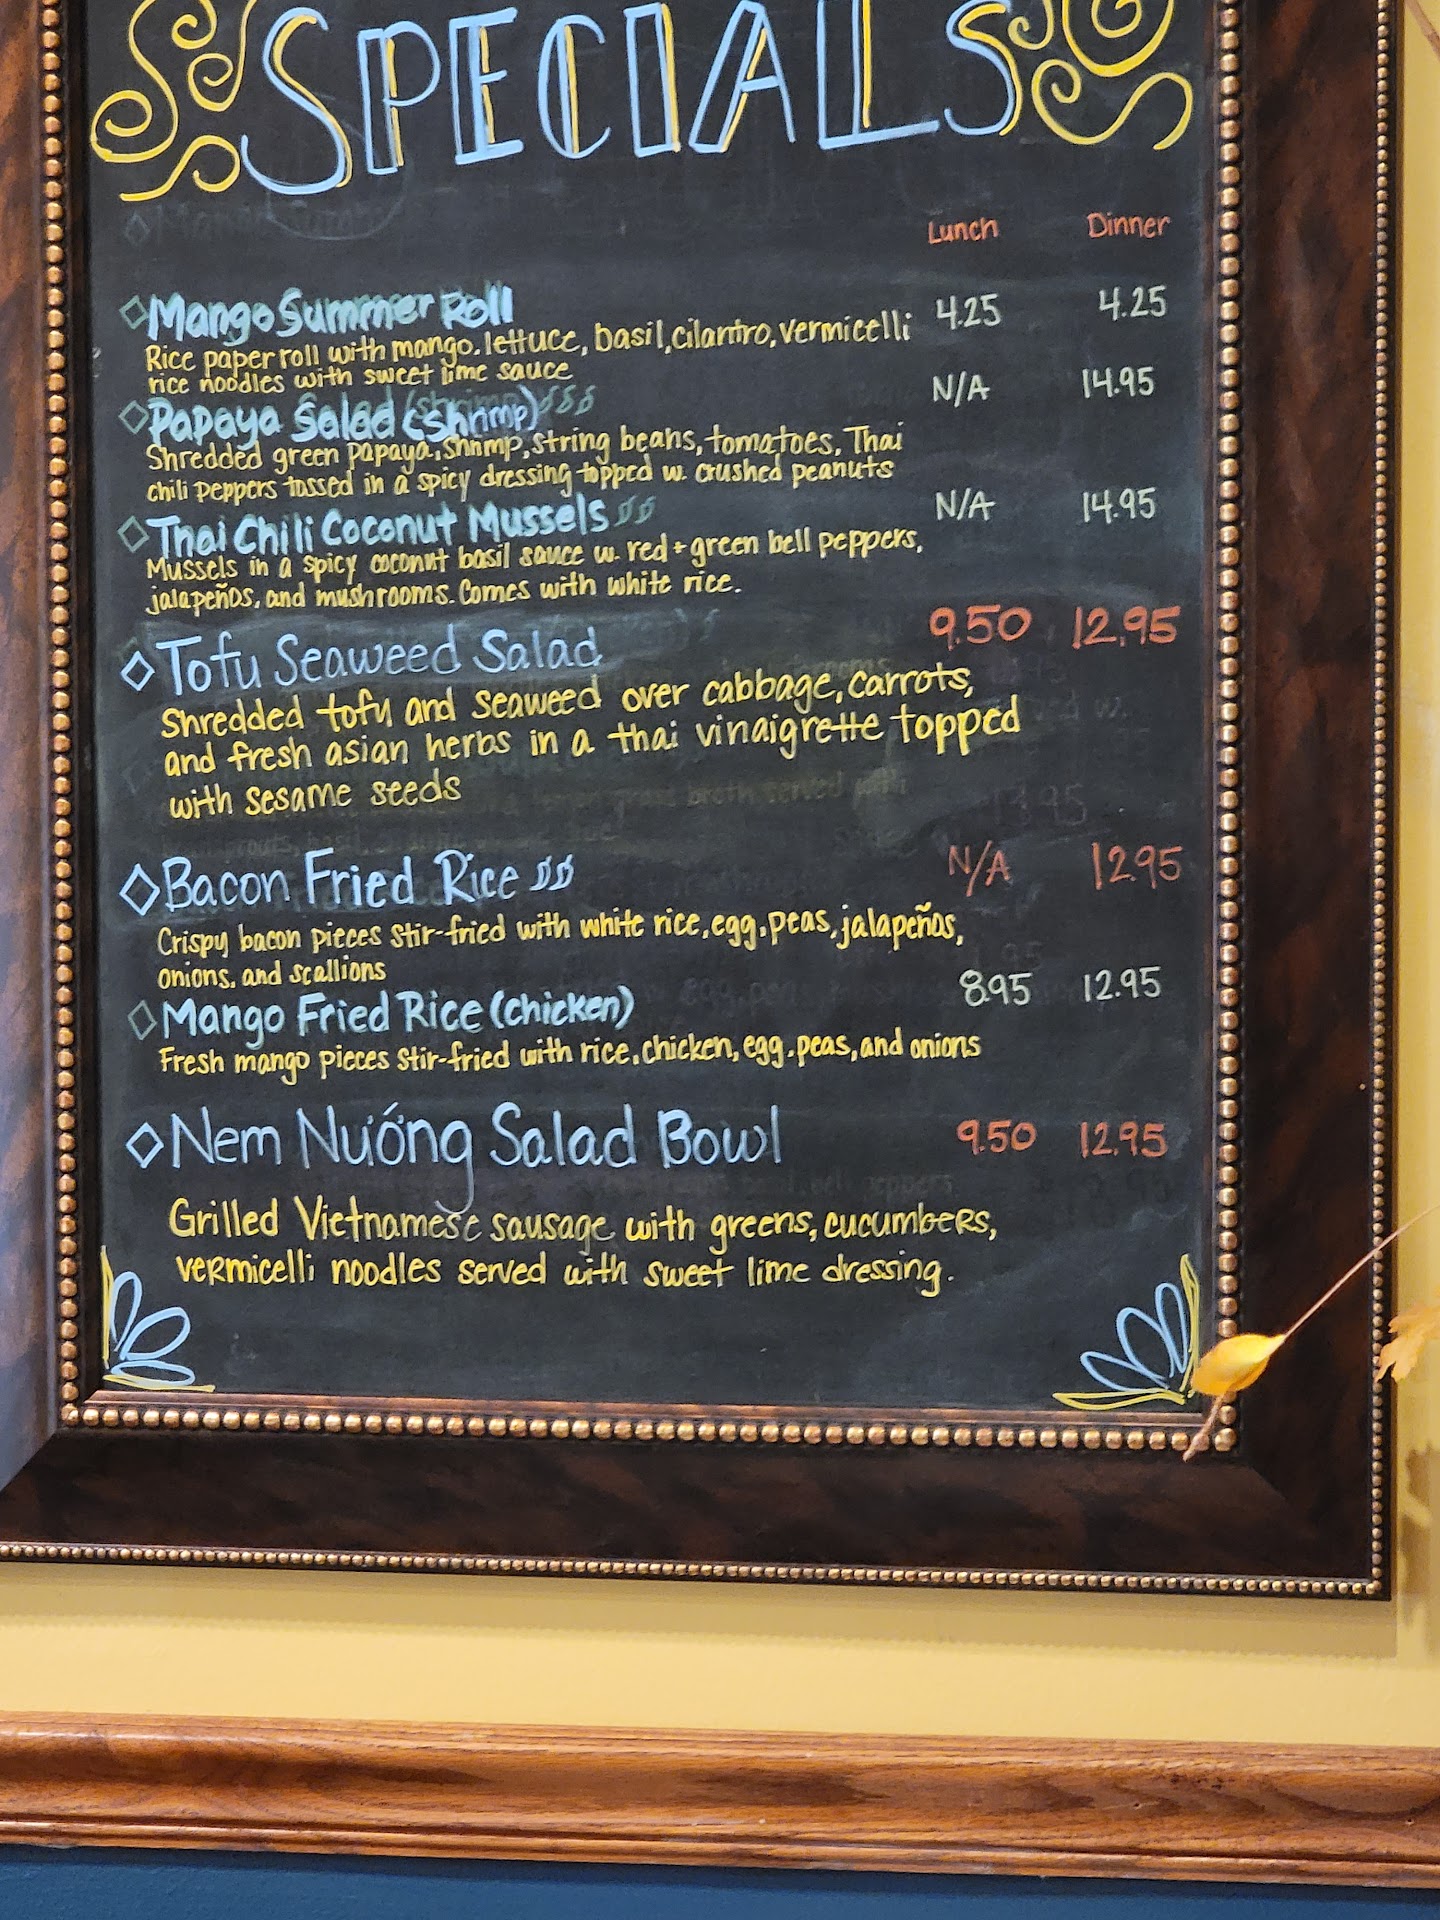 SPECIALS
Lunch Dinner
Mango Summer Roll 4.25 4.25
Rice paper roll with mango, lettuce, basil, cilantro, vermicelli
rice noodles with sweet lime sauce
Papaya Salad (shrimp) N/A 14.95
Shredded green papaya, shrimp, string beans, tomatoes, Thai
chili peppers tossed in a spicy dressing topped w. crushed peanuts
Thai Chili Coconut Mussels N/A 14.95
Mussels in a spicy coconut basil sauce w. red + green bell peppers,
jalapeños, and mushrooms. Comes with white rice.
Tofu Seaweed Salad 9.50 12.95
Shredded tofu and seaweed over cabbage, carrots,
and fresh asian herbs in a thai vinaigrette topped
with sesame seeds
Bacon Fried Rice N/A 12.95
Crispy bacon pieces stir-fried with white rice, egg, peas, jalapeños,
onions, and scallions
Mango Fried Rice (chicken) 8.95 12.95
Fresh mango pieces stir-fried with rice, chicken, egg, peas, and onions
Nem Nướng Salad Bowl 9.50 12.95
Grilled Vietnamese sausage with greens, cucumbers,
vermicelli noodles served with sweet lime dressing.